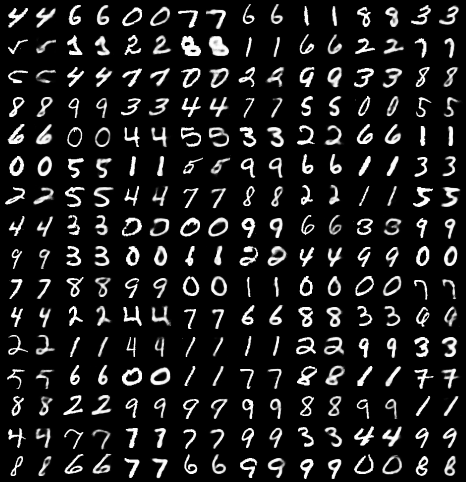 4 4 6 6 0 0 7 7 6 6 1 1 8 8 3 3
5 5 1 1 2 2 8 8 1 1 6 6 2 2 7 7
5 5 4 4 7 7 0 0 2 2 9 9 3 3 8 8
8 8 9 9 3 3 4 4 7 7 5 5 0 0 5 5
6 6 0 0 4 4 5 5 3 3 2 2 6 6 1 1
0 0 5 5 1 1 5 5 9 9 6 6 1 1 3 3
2 2 5 5 4 4 7 7 8 8 2 2 1 1 5 5
4 4 3 3 0 0 0 0 9 9 6 6 3 3 9 9
9 9 3 3 0 0 1 1 2 2 4 4 9 9 0 0
7 7 8 8 9 9 0 0 1 1 0 0 0 0 7 7
4 4 2 2 4 4 7 7 6 6 8 8 3 3 6 6
2 2 1 1 4 4 1 1 1 1 2 2 9 9 3 3
5 5 6 6 0 0 1 1 7 7 8 8 1 1 7 7
8 8 2 2 9 9 9 9 9 9 8 8 9 9 1 1
4 4 7 7 7 7 7 7 9 9 3 3 4 4 9 9
8 8 6 6 7 7 6 6 9 9 9 9 0 0 8 8